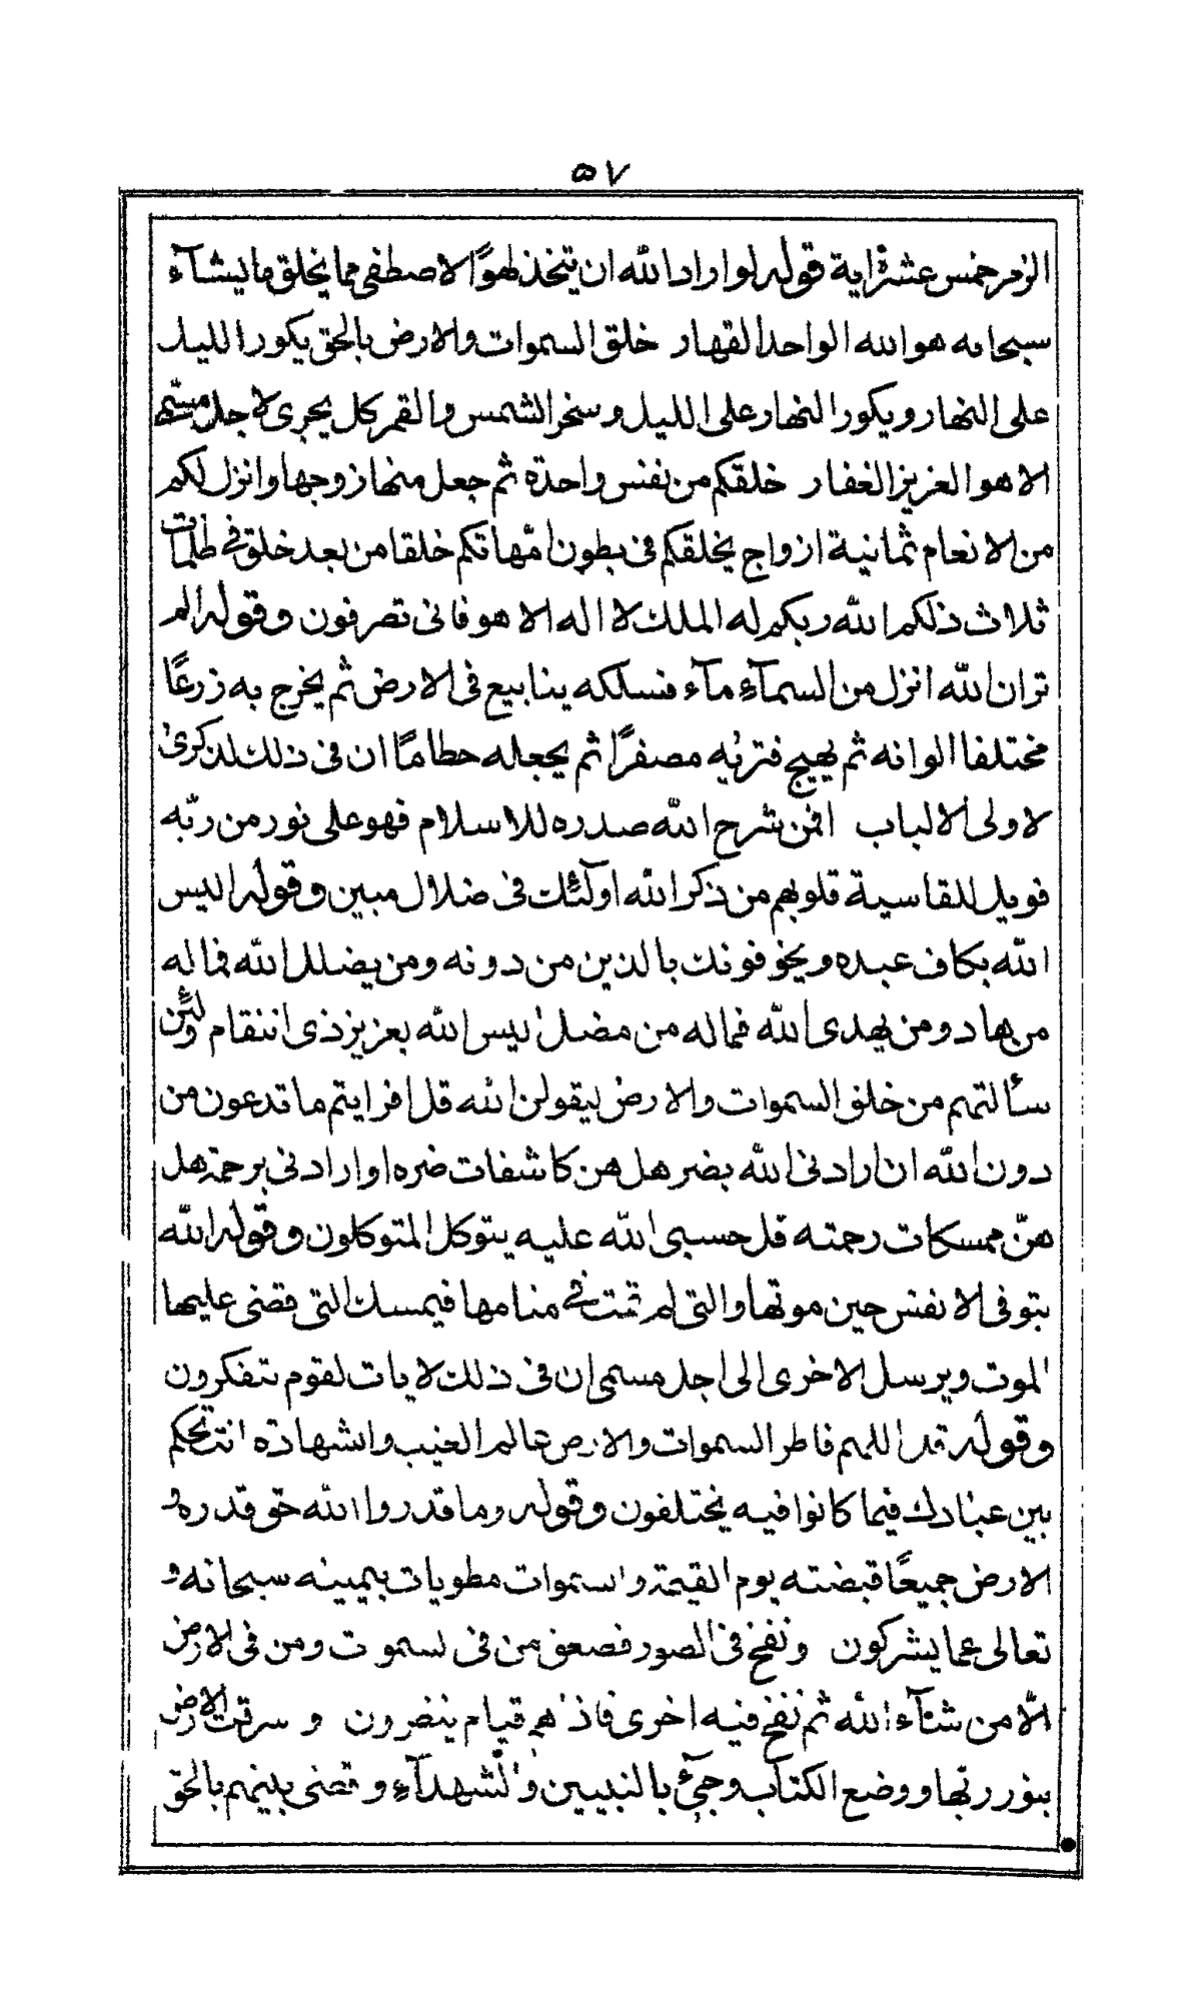 ٥٧
الزمر خمس عشرة اية قوله لو اراد الله ان يتخذ لهوًا لاصطفى مما يخلق ما يشآء
سبحانه هو الله الواحد القهار خلق السموات والارض بالحق يكور الليل
على النهار ويكور النهار على الليل وسخر الشمس والقمر كل يجرى لاجل مسمّى
الا هو العزيز الغفار خلقكم من نفس واحدة ثم جعل منها زوجها وانزل لكم
من الانعام ثمانية ازواج يخلقكم فى بطون امّهاتكم خلقا من بعد خلق فى ظلمات
ثلاث ذلكم الله ربكم له الملك لا اله الا هو فانى تصرفون وقوله الم
تر ان الله انزل من السمآء مآء فسلكه ينابيع فى الارض ثم يخرج به زرعًا
مختلفا الوانه ثم يهيج فتريه مصفرًا ثم يجعله حطامًا ان فى ذلك لذكرى
لاولى الالباب افمن شرح الله صدره للاسلام فهو على نور من ربّه
فويل للقاسية قلوبهم من ذكر الله اولٓئك فى ضلال مبين وقوله اليس
الله بكاف عبده ويخوفونك بالذين من دونه ومن يضلل الله فما له
من هاد ومن يهدى الله فما له من مضل اليس الله بعزيز ذى انتقام ولئن
سألتهم من خلق السموات والارض ليقولن الله قل افرايتم ما تدعون من
دون الله ان ارادنى الله بضر هل هن كاشفات ضره او ارادنى برحمة هل
هنّ ممسكات رحمته قل حسبى الله عليه يتوكل المتوكلون وقوله الله
يتوفى الانفس حين موتها والتى لم تمت فى منامها فيمسك التى قضى عليها
الموت ويرسل الاخرى الى اجل مسمى ان فى ذلك لايات لقوم يتفكرون
وقوله قل اللهم فاطر السموات والارض عالم الغيب والشهادة انت تحكم
بين عبادك فيما كانوا فيه يختلفون وقوله وما قدروا الله حق قدره و
الارض جميعًا قبضته يوم القيمة والسموات مطويات بيمينه سبحانه و
تعالى عما يشركون ونفخ فى الصور فصعق من فى السموات ومن فى الارض
الّا من شآء الله ثم نفخ فيه اخرى فاذا هم قيام ينظرون و اشرقت الارض
بنور ربّها ووضع الكتاب وجىء بالنبيين والشهدآء وقضى بينهم بالحق